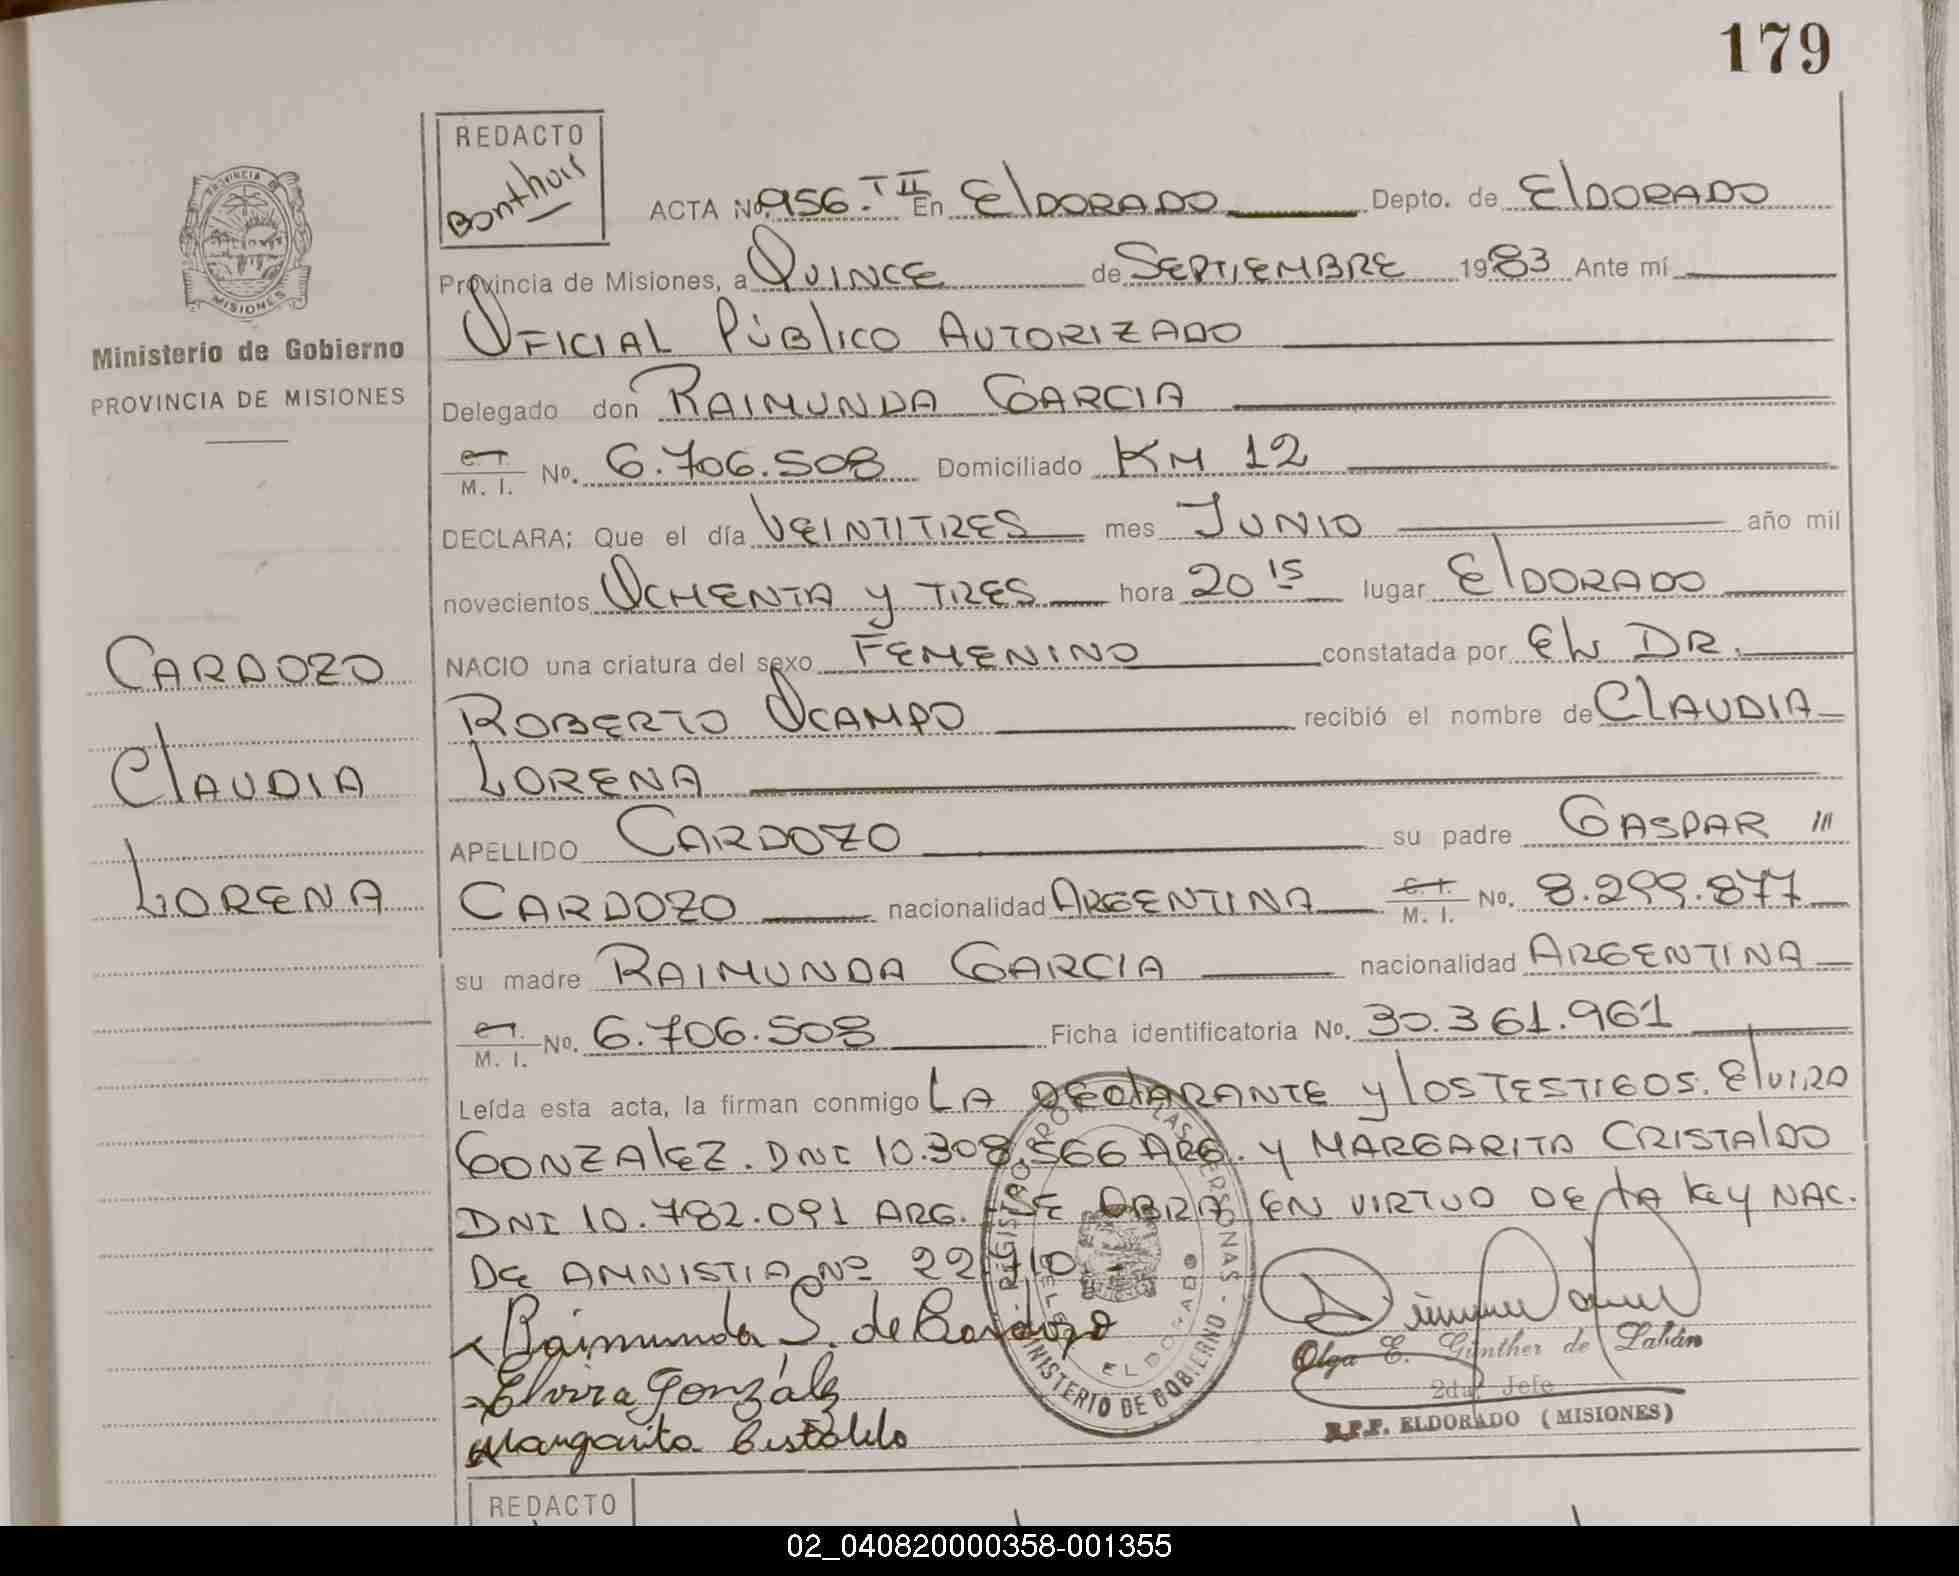 179
REDACTO
Bonthuis
ACTA No. 956. T II En ElDORADO Depto. de ElDORADO
Provincia de Misiones, a QUINCE de SEPTIEMBRE 1983 Ante mí
OFICIAL PÚBlICO AUTORIZADO
Delegado don RAIMUNDA GARCIA
C. I. / M. I. No. 6.706.508 Domiciliado KM 12
DECLARA; Que el día VEINTITRES mes JUNIO año mil
novecientos OCHENTA y TRES hora 20 15 lugar ElDORADO
NACIO una criatura del sexo FEMENINO constatada por EL DR.
ROBERTO OCAMPO recibió el nombre de ClAUDIA
LORENA
APELLIDO CARDOZO su padre GASPAR "'
CARDOZO nacionalidad ARGENTINA C. I. / M. I. No. 8.299.877
su madre RAIMUNDA GARCIA nacionalidad ARGENTINA
C. I. / M. I. No. 6.706.508 Ficha identificatoria No. 30.361.961
Leída esta acta, la firman conmigo LA DEClARANTE y lOS TESTIGOS. ElVIRA
GONZAlEZ. DNI 10.308.566 ARG. y MARGARITA CRISTAlDO
DNI 10.782.091 ARG. SE LABRA EN VIRTUD DE LA LEY NAC.
DE AMNISTIA Nº 22.710.-
Raimunda G. de Cardozo
Elvira González
Margarita Cristaldo
Olga E. Günther de
2da. Jefe
R.P.P. ELDORADO (MISIONES)
MINISTERIO DE GOBIERNO
ELDORADO
PROVINCIA DE
MISIONES
Ministerio de Gobierno
PROVINCIA DE MISIONES
CARDOZO
ClAUDIA
LORENA
REDACTO
02_040820000358-001355